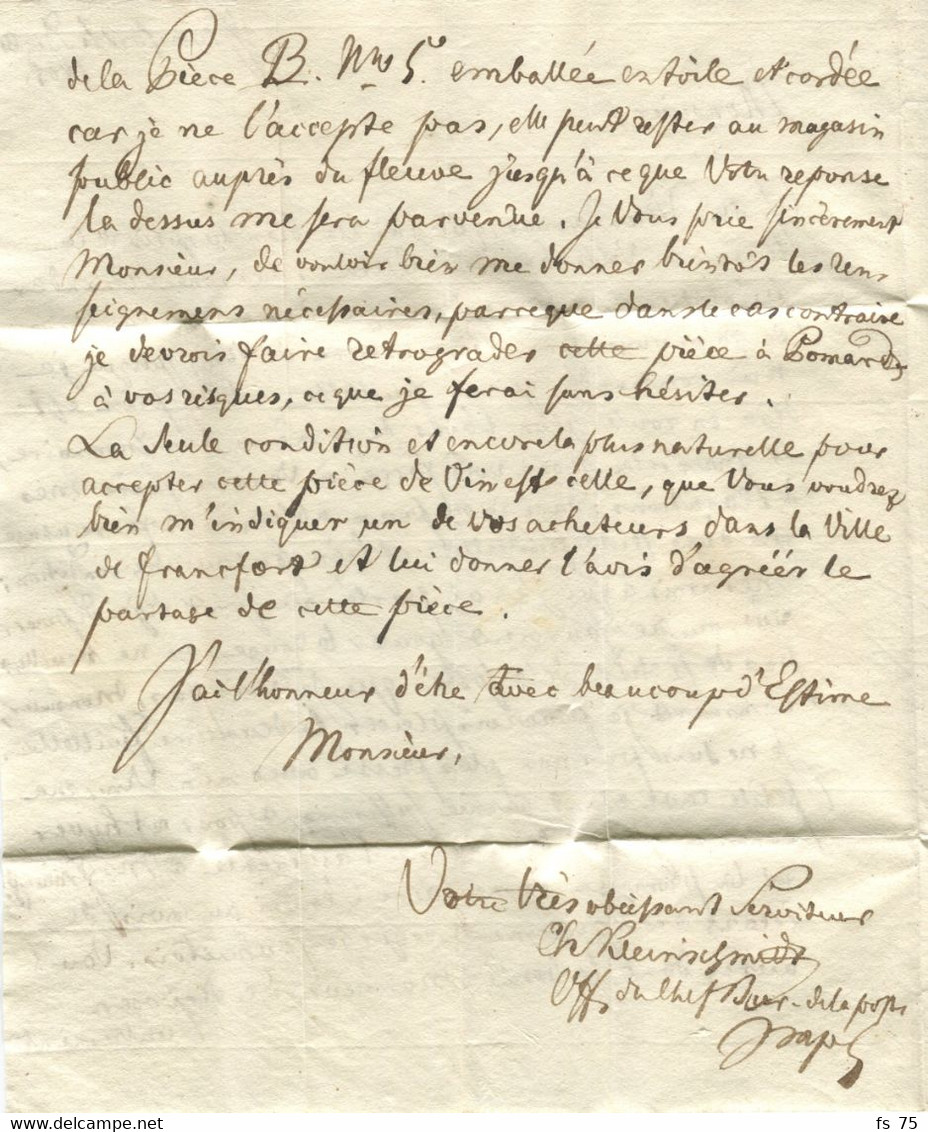 de la Pièce B. Nro 5. emballée en toile et cordée
car je ne l'accepte pas, elle peut rester au magasin
public auprès du fleuve jusqu'à ce que Votre reponse
la dessus me sera parvenue. Je Vous prie sincèrement
Monsieur, de vouloir bien me donner bientôt les ren
seignemens nécessaires, parceque dans le cas contraire
je devrois faire retrograder cette pièce à Pomard
à vos risques, ce que je ferai sans hésiter.
La seule condition et encore la plus naturelle pour
accepter cette pièce de Vin est celle, que Vous voudrez
bien m'indiquer un de Vos acheteurs dans la Ville
de francfort et lui donner l'avis d'agréër le
partage de cette pièce.
J'ai l'honneur d'être avec beaucoup d'Estime
Monsieur,
Votre très obeissant Serviteur
Ch Kleinschmidt
Off. du Chef Bur. de la poste
fs 75